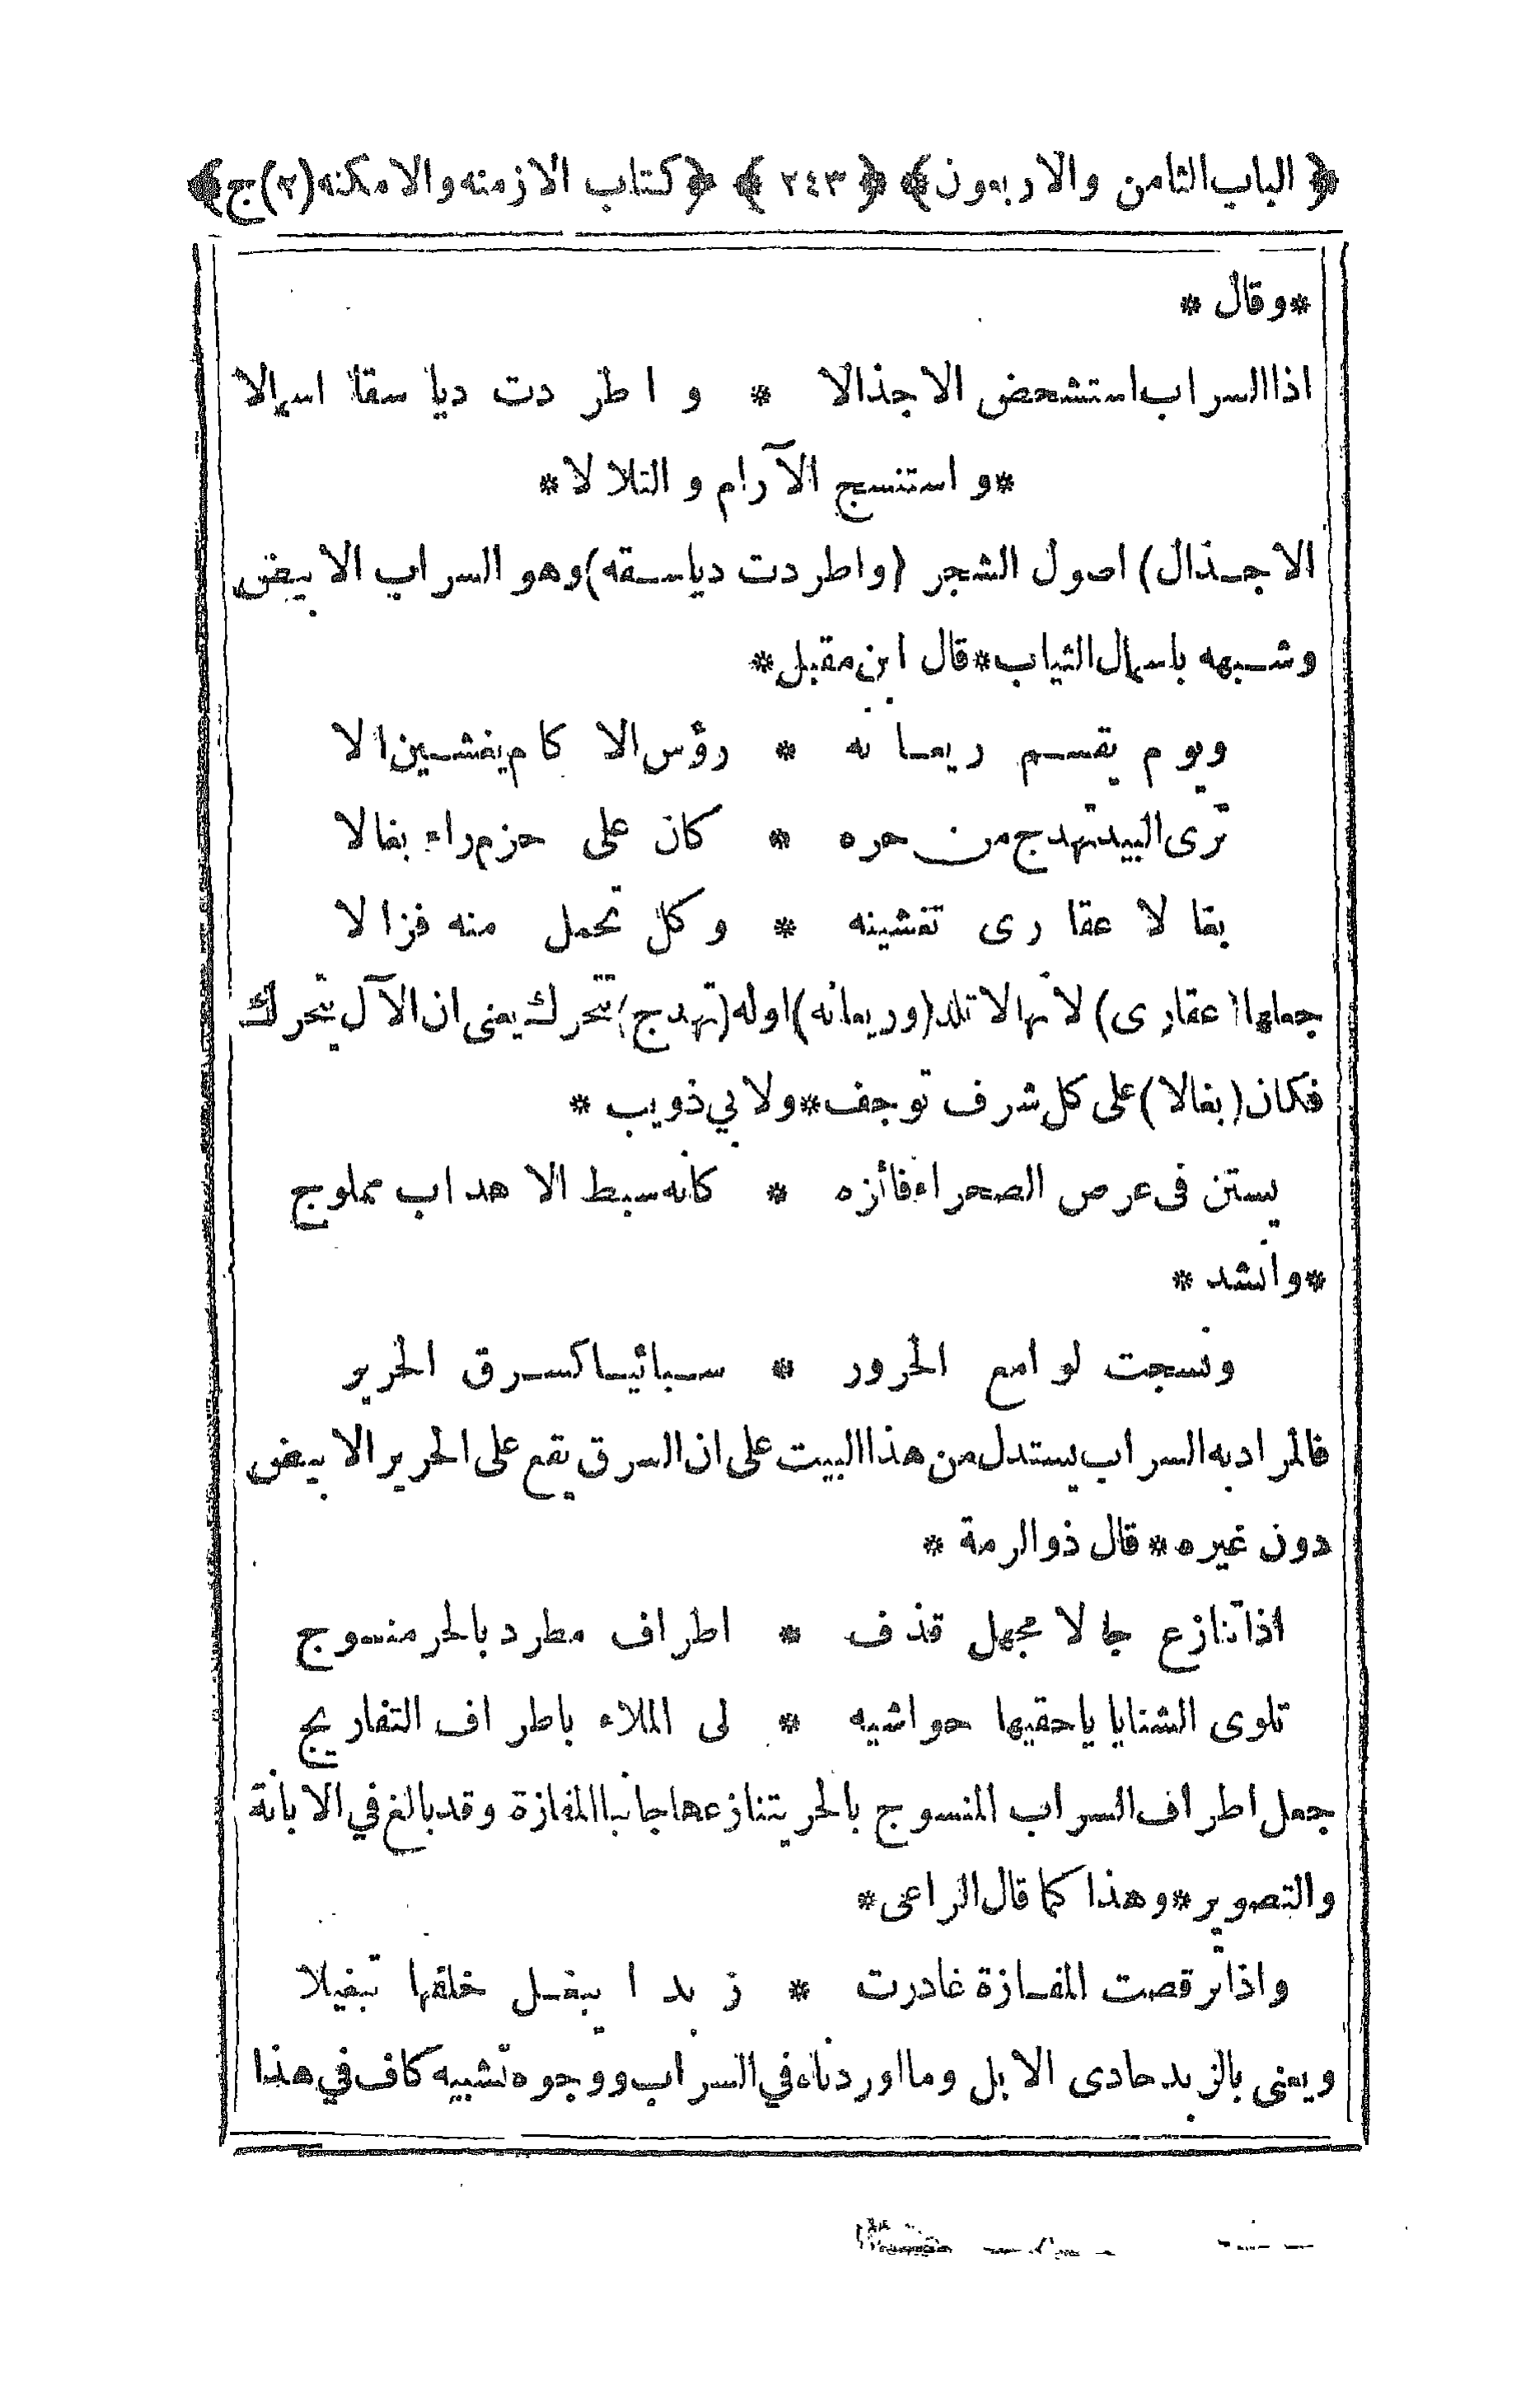 ﴿الباب الثامن والاربعون﴾ ﴿٢٤٣﴾ ﴿كتاب الازمنه والامكنه(٢)ج﴾
*وقال *
اذا السراب استشحض الاجذالا * و اطر دت ديا سقا اسمالا
*و استنسج الآرام و التلا لا*
الاجـذال) اصول الشجر (واطردت دياسـقه) وهو السراب الابيض
وشـبهه باسمال الثياب*قال ابن مقبل*
ويو م يقسـم ريعـا نه * رؤس الا كام يغشـين الا
ترى البيد تهدج من حره * كان على حزم راء بغالا
بقا لا عقا رى تغشينه * وكل تحمل منه فزا لا
جعلها (عقارى) لانها لا تلد (وريعانه) اوله (تهدج) تتحرك يعنى ان الآل يتحرك
فكان (بغالا) على كل شرف توجف*ولابي ذويب *
يستن فى عرص الصحراء فائزه * كانه سبط الا هداب مملوج
*وانشد *
ونسجت لو امع الحرور * سـبائيـا كسـرق الحرير
فالمراد به السراب يستدل من هذا البيت على ان السرق يقع على الحرير الابيض
دون غيره*قال ذوالرمة *
اذا تنازع جا لا مجهل قذف * اطراف مطرد بالحر منسوج
تلوى الشنايا ياحقيها حواشيه * لى الملاء باطراف التفاريج
جعل اطراف السراب المنسوج بالحر يتنازعها جانبا المفازة وقد بالغ في الابانة
والتصوير*وهذا كما قال الراعى*
واذا ترقصت المفـازة غادرت * ز بد ا يبغـل خلفها تبغيلا
ويعنى بالزبد حادى الابل وما اوردناه في السراب ووجوه تشبيه كاف في هذا